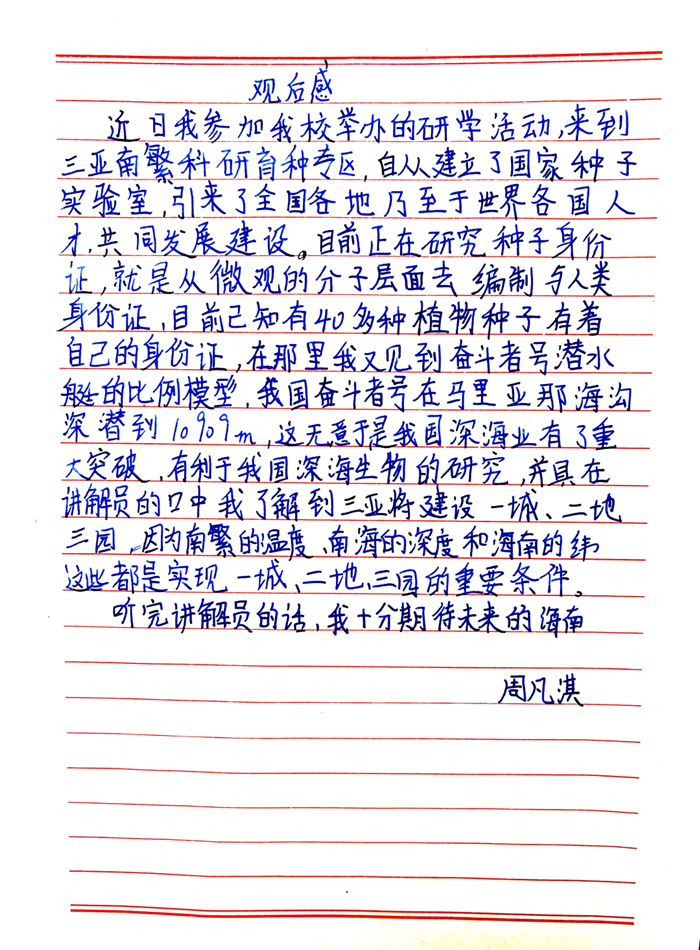 观后感
近日我参加我校举办的研学活动,来到
三亚南繁科研育种专区,自从建立了国家种子
实验室,引来了全国各地乃至于世界各国人
才,共同发展建设。目前正在研究种子身份
证,就是从微观的分子层面去编制与人类
身份证,目前已知有40多种植物种子有着
自己的身份证,在那里我又见到奋斗者号潜水
艇的比例模型,我国奋斗者号在马里亚那海沟
深潜到10909m,这无意于是我国深海业有了重
大突破,有利于我国深海生物的研究,并且在
讲解员的口中我了解到三亚将建设一城、二地
三园,因为南繁的温度、南海的深度和海南的纬
这些都是实现一城、二地、三园的重要条件。
听完讲解员的话,我十分期待未来的海南
周凡淇